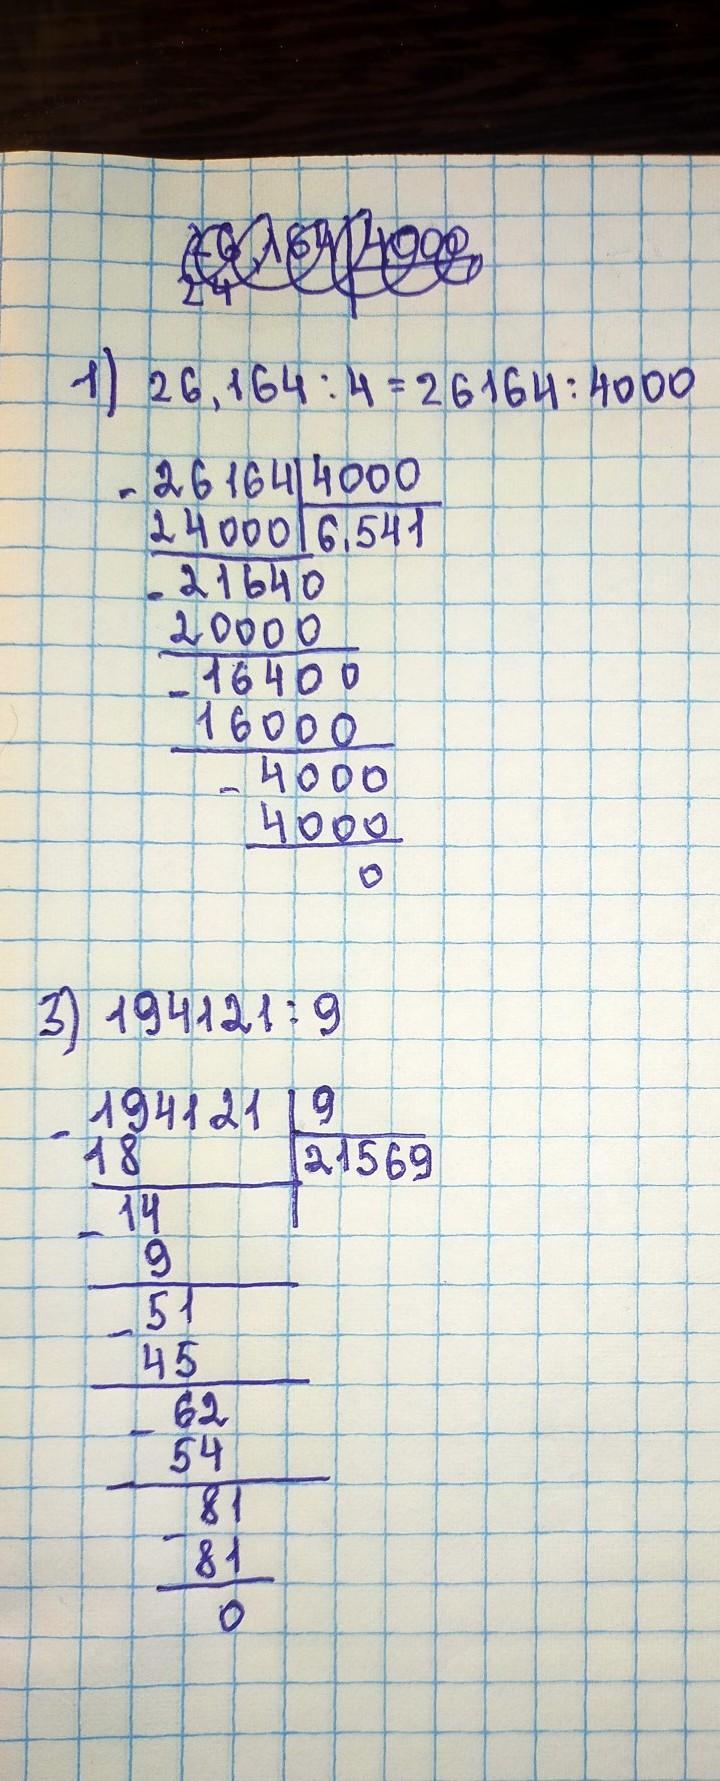 26,164 4000
24
1) 26,164 : 4 = 26164 : 4000
- 26164 4000
24000 6,541
- 21640
20000
- 16400
16000
- 4000
4000
0
3) 194121 : 9
- 194121 9
18 21569
- 14
9
- 51
45
- 62
54
- 81
81
0